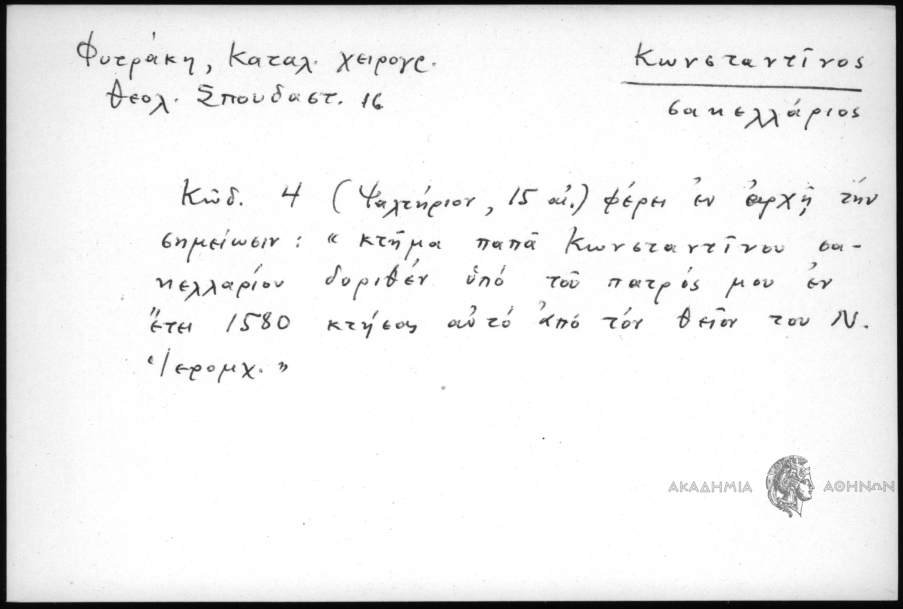 Φυτράκη, Καταλ. χειρογρ.
Θεολ. Σπουδαστ. 16
Κωνσταντῖνος
σακελλάριος
Κῶδ. 4 (Ψαλτήριον, 15 αἰ.) φέρει ἐν ἀρχῇ τὴν
σημείωσιν: "κτῆμα παπᾶ Κωνσταντίνου σα-
κελλαρίου δοριθέν ὑπό τοῦ πατρός μου ἐν
ἔτει 1580 κτήσας αὐτό ἀπό τόν θεῖον του Ν.
Ἱερομχ."
ΑΚΑΔΗΜΙΑ ΑΘΗΝΩΝ